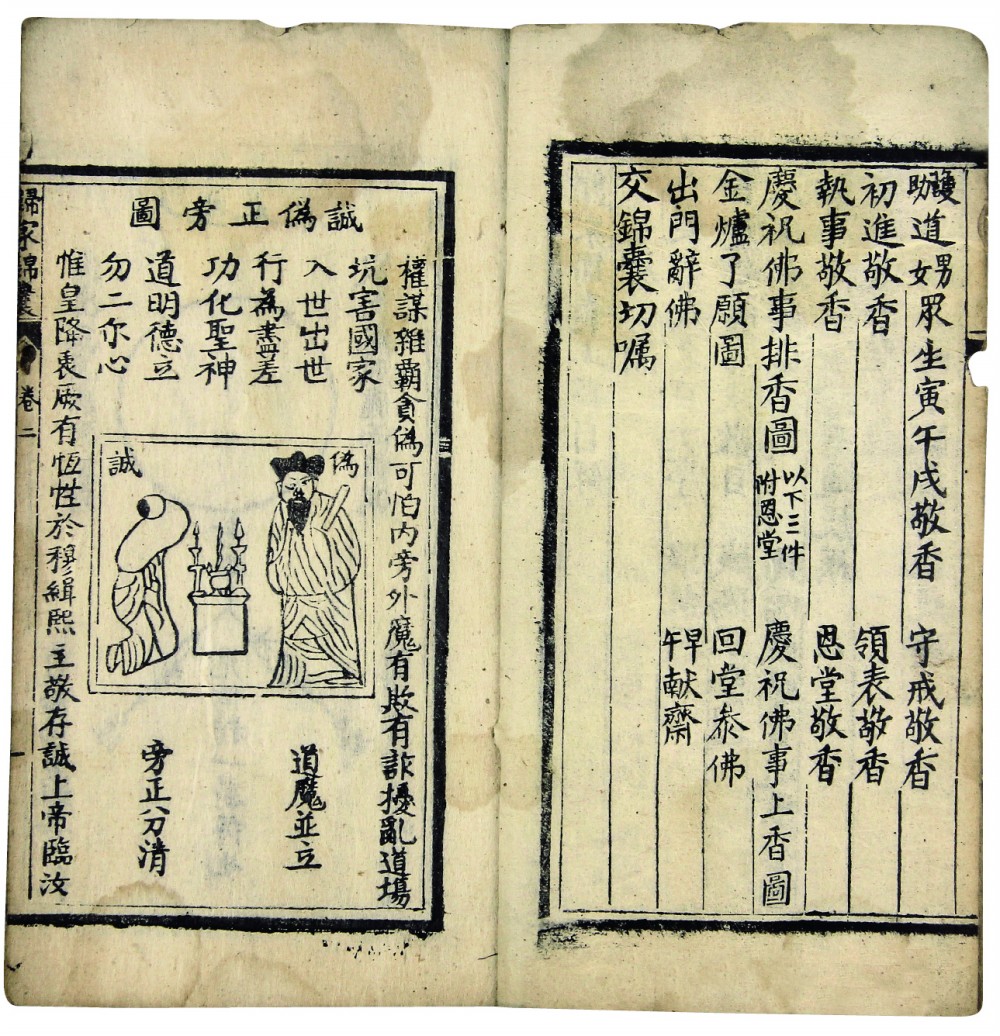 護道男女眾生寅午戌敬香 守戒敬香
初進敬香 領表敬香
執事敬香 恩堂敬香
慶祝佛事排香圖 以下三件附恩堂 慶祝佛事上香圖
金爐了願圖 回堂叅佛
出門辭佛 早午献齋
交錦囊切嘱
誠偽正旁圖
權謀雜霸貪偽可怕內旁外魔有欺有詐擾亂道場
坑害國家
入世出世
行為盡差
功化聖神
道明德立
勿二尔心
偽
誠
道魔並立
旁正分清
惟皇降衷厥有恆性於穆緝熙主敬存誠上帝臨汝
歸家錦囊 卷二